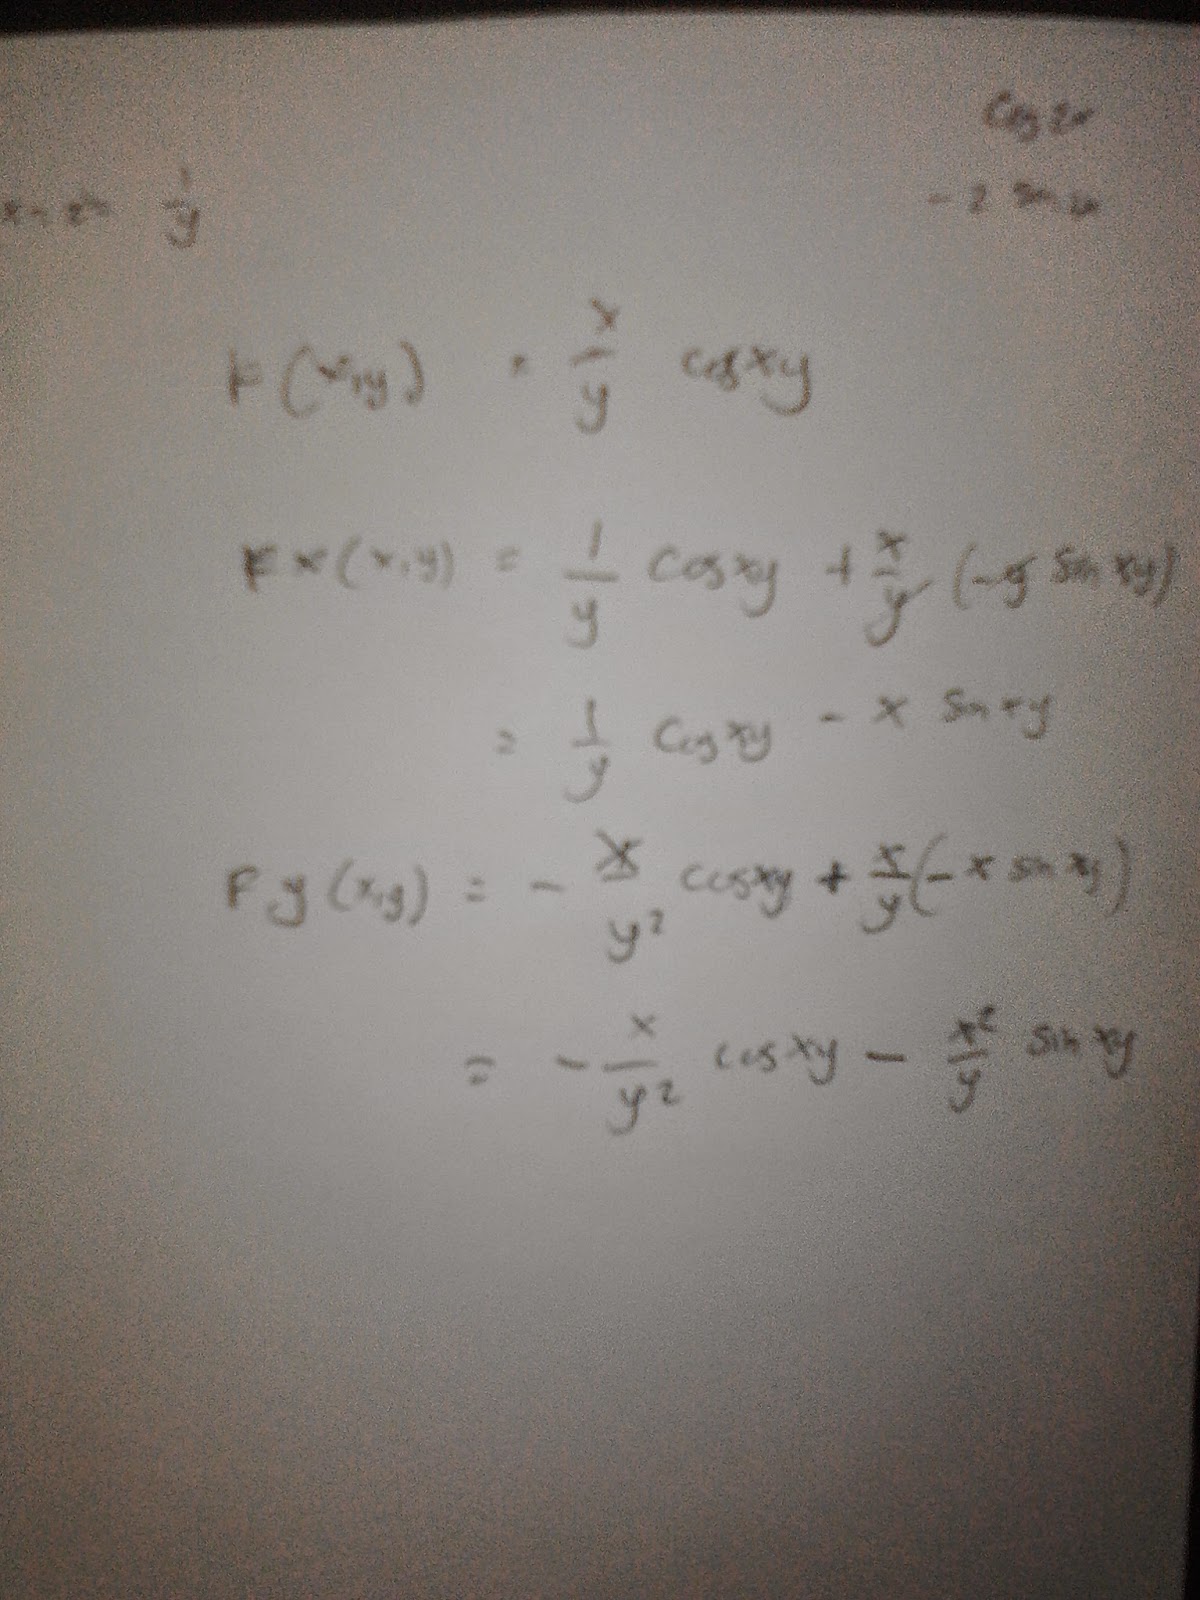 cos 2x
- 2 sin 2x
1/y
F(x,y) = x/y cos xy
Fx(x,y) = 1/y cos xy + x/y (-y sin xy)
= 1/y cos xy - x sin xy
Fy(x,y) = - x/y² cos xy + x/y (-x sin xy)
= - x/y² cos xy - x²/y sin xy